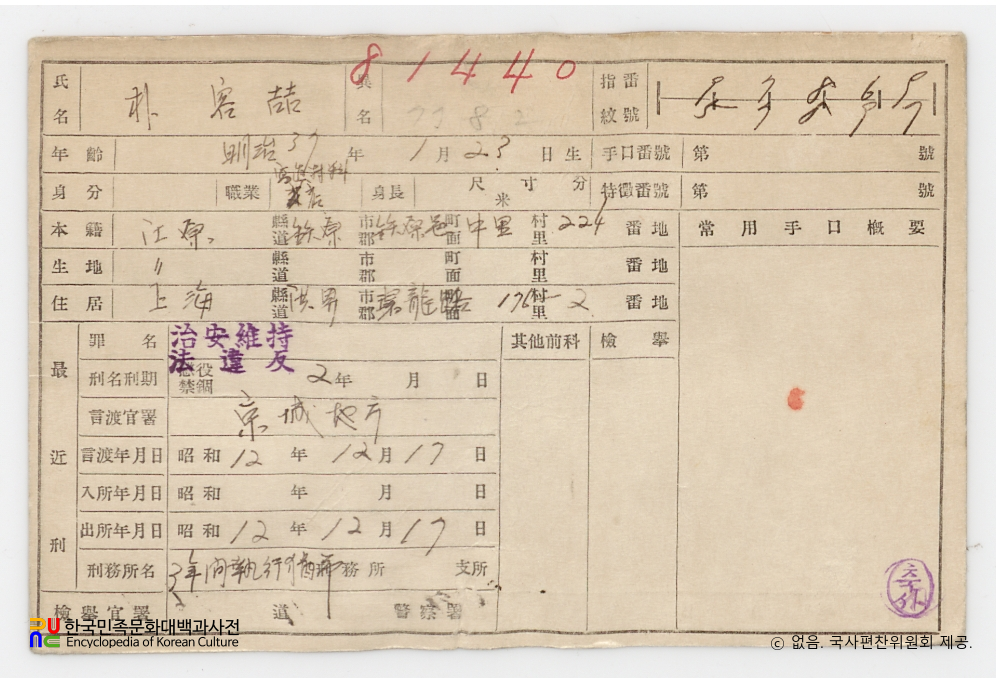 81440
氏名 朴容喆 異名 7782 指紋番號
年齡 明治37年1月23日生 手口番號 第 號
身分 職業 寫眞材料店 身長 尺寸分 米 特徵番號 第 號
本籍 江原 縣道 鉄原 市郡 鉄原邑 町面 中里 村里 224 番地 常用手口概要
生地 〃 縣道 市郡 町面 村里 番地
住居 上海 縣道 市郡 町面 村里 2 番地
最近刑
罪名 治安維持法違反 其他前科 檢擧
刑名刑期 懲役 禁錮 2年 月 日
言渡官署 京城地方
言渡年月日 昭和12年12月17日
入所年月日 昭和 年 月 日
出所年月日 昭和12年12月17日
刑務所名 3年間執行猶豫 務所 支所
檢擧官署 道 警察署
한국민족문화대백과사전
Encyclopedia of Korean Culture
© 없음. 국사편찬위원회 제공.